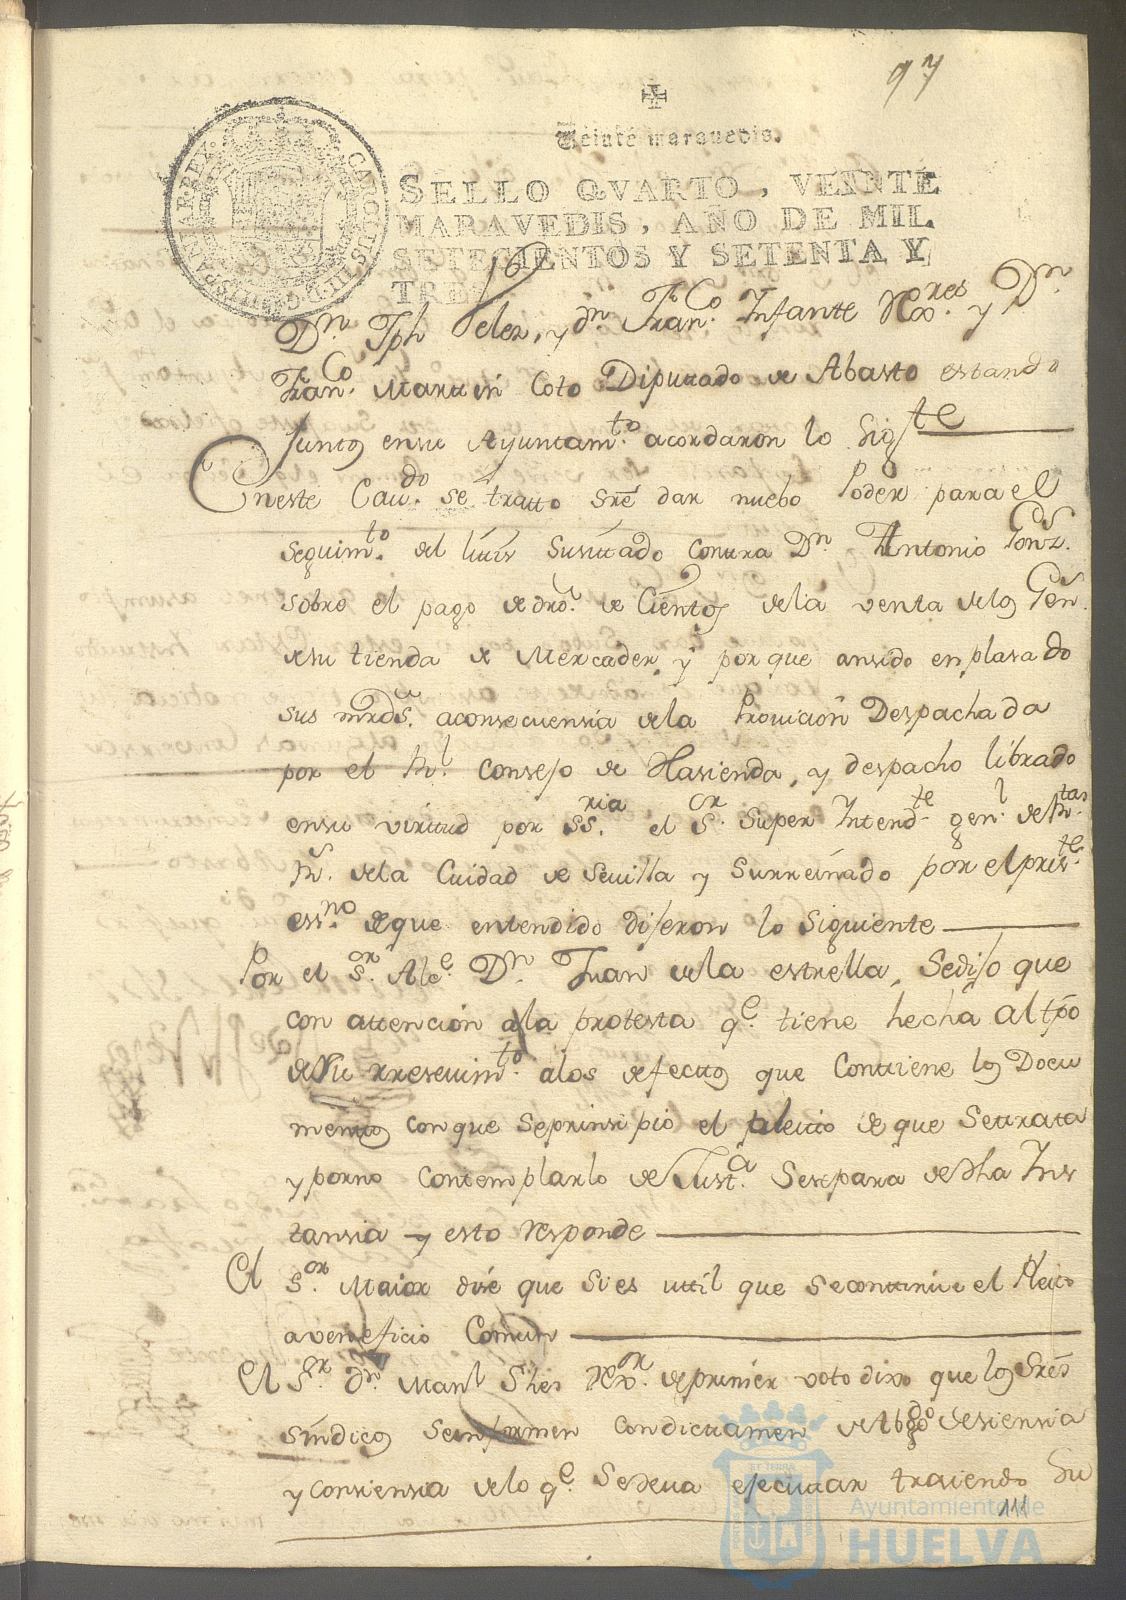 97
Veinte maravedis.
SELLO QVARTO, VEINTE
MARAVEDIS, AÑO DE MIL
SETECIENTOS Y SETENTA Y
TRES
CAROLUS III D. G. HISPANIAR. REX
Dn. Jph Velez, y dn. Franco. Infante Rexres. y Dn.
Franco. Martin Coto Diputado de Abasto estando
Juntos ensu Ayuntamto. acordaron lo Sigte
Eneste Cavdo. se tratto sre dar nuebo Poder para el
seguimto. del litis susittado contra Dn. Antonio Gonz.
sobre el pago de dros. de Cientos dela venta delos Gen.
desu tienda de Mercader, y porque ansido enplasado
sus mrds. aconsecuensia dela Provicion Despachada
por el Rl. Consejo de Hasienda, y despacho librado
ensu virtud por SSria. el Sor. Super Intendte. genl. de Rtas
Rs. dela Cuidad de Sevilla y Surreinado por el prste.
essno. de que entendido dijeron lo siguiente
Por el Sor. Alce. Dn. Juan dela estrella, Sedijo que
con attencion a la protesta qe. tiene hecha al tpo
desu rresevimto. alos defectos que Contiene los Docu
mentos con que seprinsipio el pleito de que Setrata
y porno contemplarlo de Justa. Sesepara de dha Ins
tansia y esto responde
El Sor. Maior dise que si es util que secontinue el Pleito
aveneficio Comun
El Sor. dn. Manl Shes Rexor. de primer voto dixo que los Sres
sindicos seinformen condictamen de Abgdo de siensia
y consiensia delo qe. Sedeva ejecutar trayendo Su
Ayuntamiento de
HUELVA